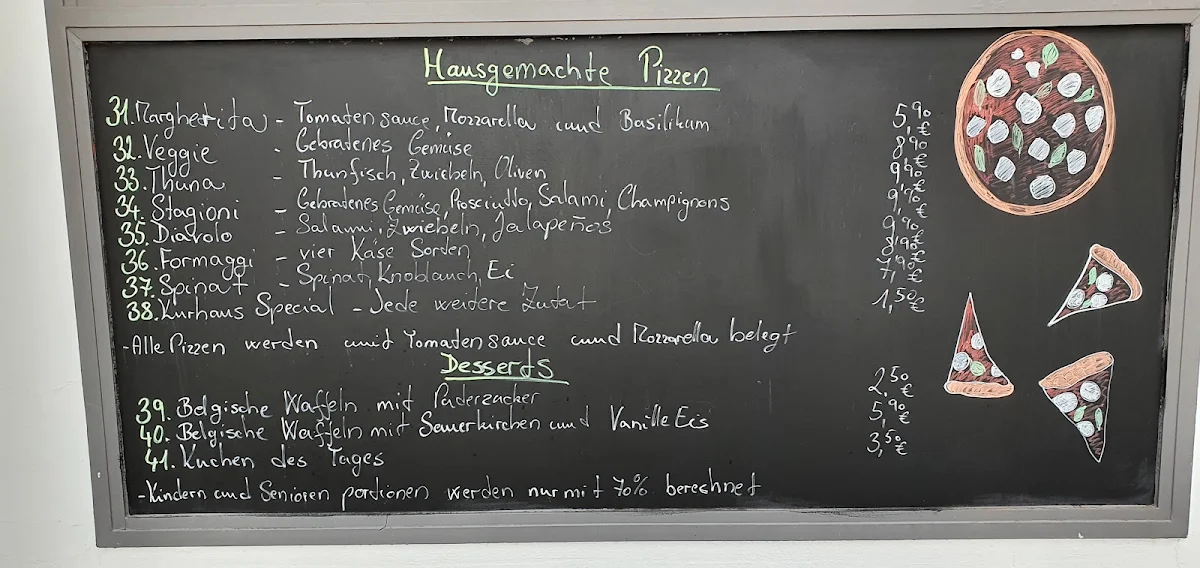 Hausgemachte Pizzen
31. Margherita - Tomatensauce, Mozzarella und Basilikum 5,90 €
32. Veggie - Gebratenes Gemüse 8,90 €
33. Thuna - Thunfisch, Zwiebeln, Oliven 9,90 €
34. Stagioni - Gebratenes Gemüse, Prosciutto, Salami, Champignons 9,90 €
35. Diavolo - Salami, Zwiebeln, Jalapeños 9,90 €
36. Formaggi - vier Käse Sorden 8,90 €
37. Spinat - Spinat, Knoblauch, Ei 7,90 €
38. Kurhaus Special - Jede weitere Zutat 1,50 €
- Alle Pizzen werden mit Tomatensauce und Mozzarella belegt
Desserds
39. Belgische Waffeln mit Puderzucker 2,50 €
40. Belgische Waffeln mit Sauerkirchen und Vanille Eis 5,90 €
41. Kuchen des Tages 3,50 €
- Kindern und Senioren portionen werden nur mit 70% berechnet